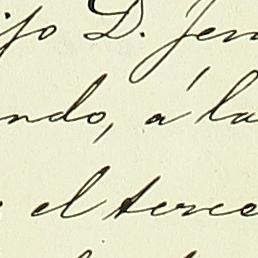 ijo D. Jen
ndo, á la
el terce